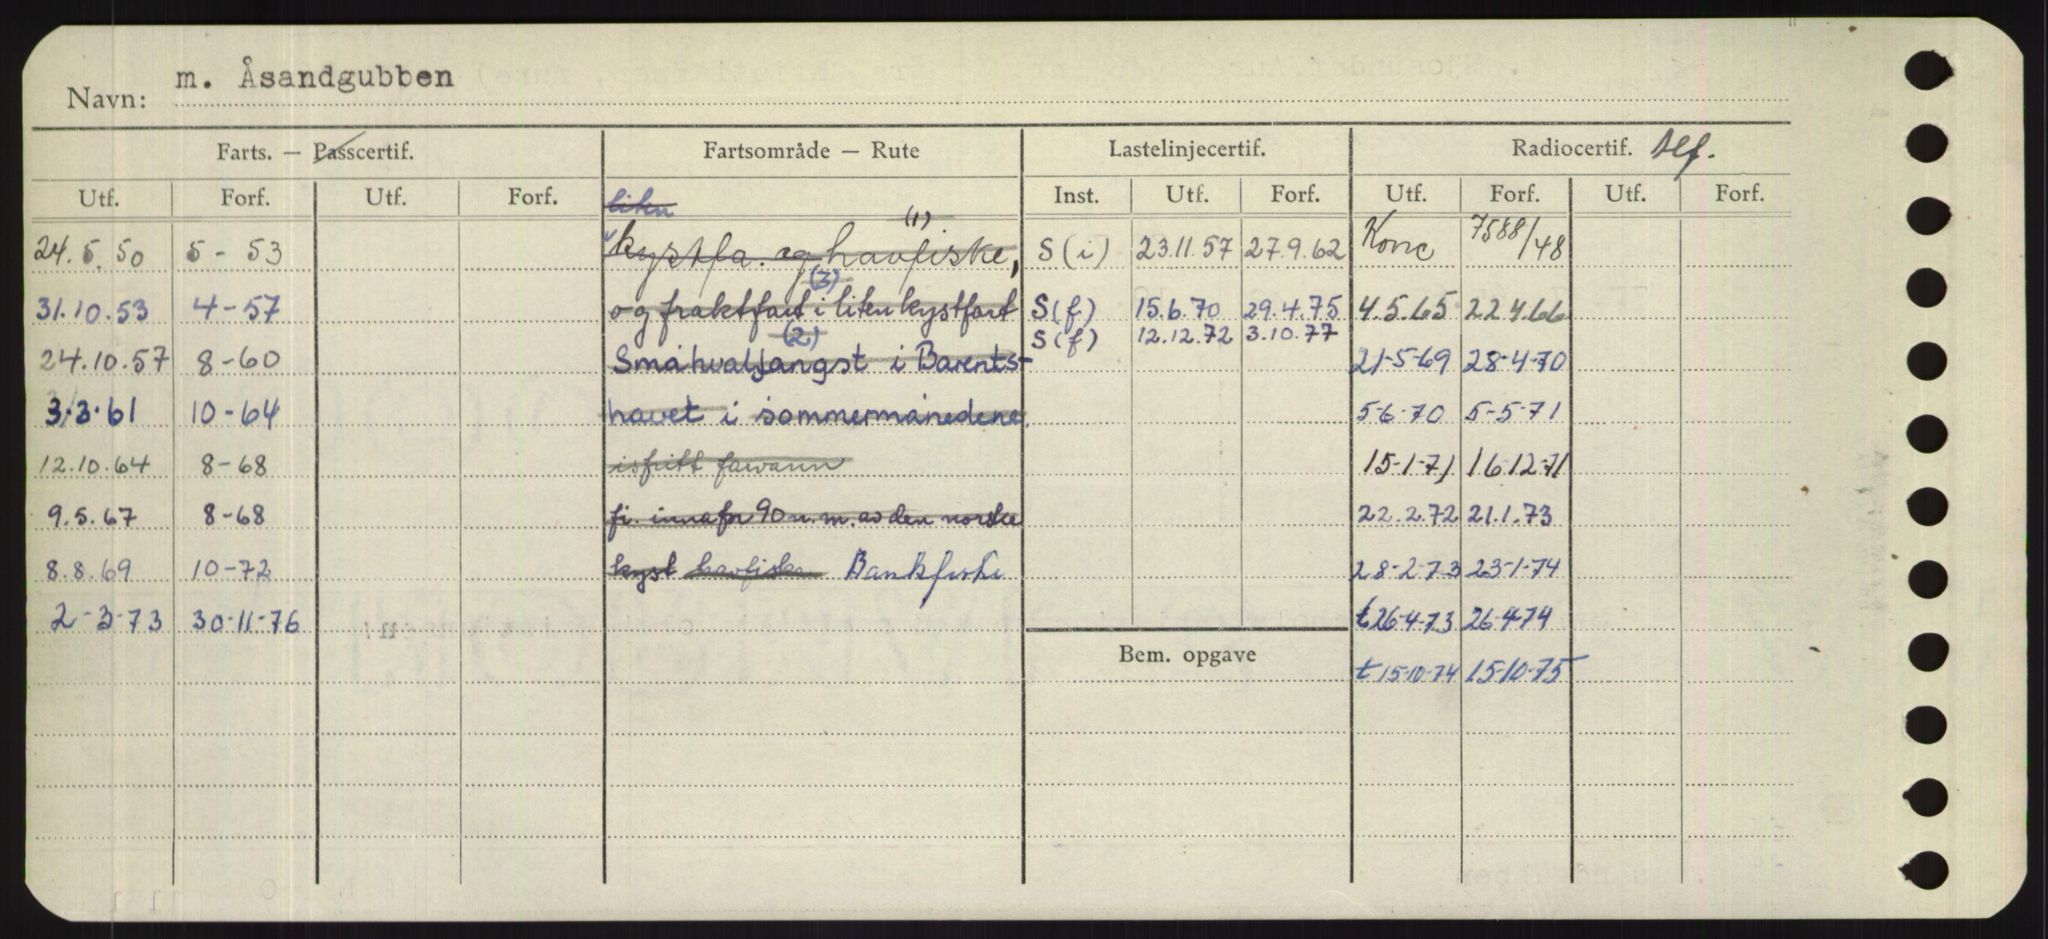 Navn: m. Åsandgubben
Farts. — Passcertif. Fartsområde — Rute Lastelinjecertif. Radiocertif. tlf.
Utf. Forf. Utf. Forf. liten Inst. Utf. Forf. Utf. Forf. Utf. Forf.
24.5.50 5-53 kystfa. og havfiske, (1) S(i) 23.11.57 27.9.62 Konc 7588/48
31.10.53 4-57 og fraktfart i liten kystfart (3) S(f) 15.6.70 29.4.75 4.5.65 22.4.66
S(f) 12.12.72 3.10.77
24.10.57 8-60 Småhvalfangst i Barents- (2) 21-5-69 28-4-70
3.3.61 10-64 havet i sommermånedene. 5-6-70 5-5-71
12.10.64 8-68 isfritt farvann 15-1-71 16-12-71
9.5.67 8-68 fi. innafor 90 n.m. av den norske 22.2.72 21.1.73
8.8.69 10-72 kyst havfiske Bankfiske 28-2-73 23-1-74
2-3-73 30-11-76 t 26-4-73 26-4-74
Bem. opgave t 15-10-74 15-10-75